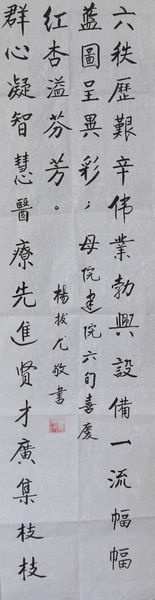 六秩歷艱辛伟業勃興設備一流幅幅
藍圖呈異彩；母院建院六旬喜慶
群心凝智慧醫療先進賢才廣集枝枝
紅杏溢芬芳。楊拔尤敬書